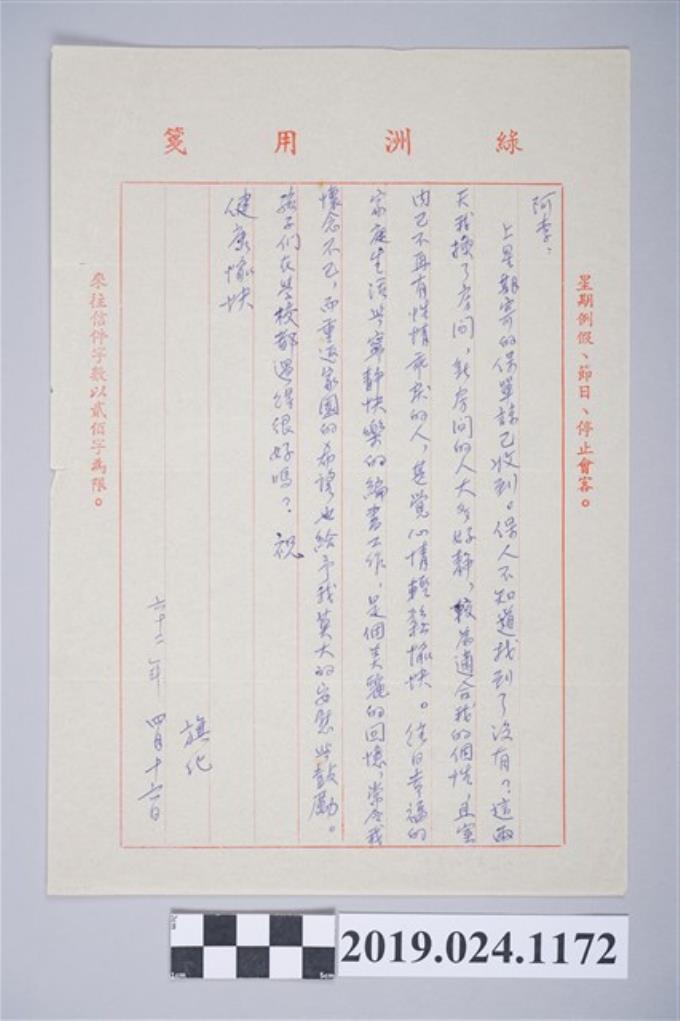 綠洲用箋
星期例假、節日、停止會客。
阿李：
上星期寄的保單諒已收到。保人不知道找到了沒有？這兩
天我換了房間，新房間的人大多好靜，較為適合我的個性，且室
內已不再有性情乖戾的人，甚覺心情輕鬆愉快。往日幸福的
家庭生活與寧靜快樂的編書工作，是個美麗的回憶，常令我
懷念不已，而重返家園的希望也給予我莫大的安慰與鼓勵。
孩子們在學校都過得很好嗎？祝
健康愉快
旗化
六十二年四月十六日
來往信件字數以貳佰字為限。
2019.024.1172